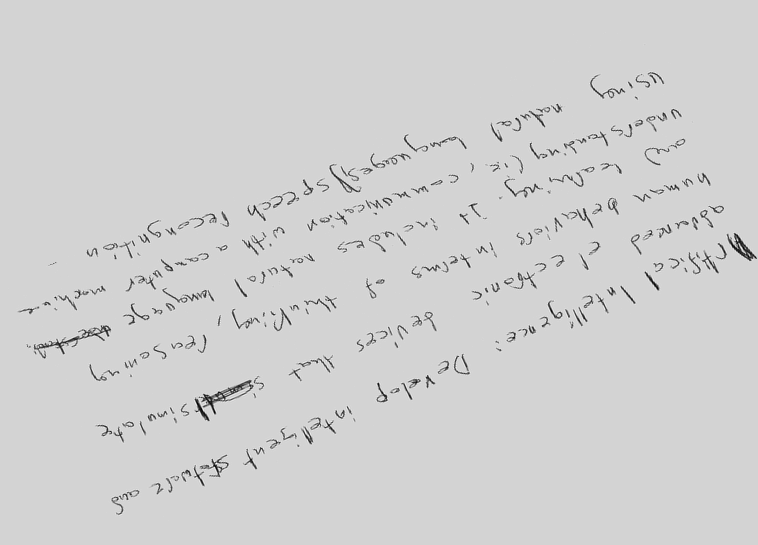 Artifical Intelligence: Develop intelligent software and
advanced electronic devices that simulate
human behaviors in terms of thinking, reasoning
and learning. It includes natural language
understanding (i.e., communication with a computer machine
using natural languages), speech recongnition